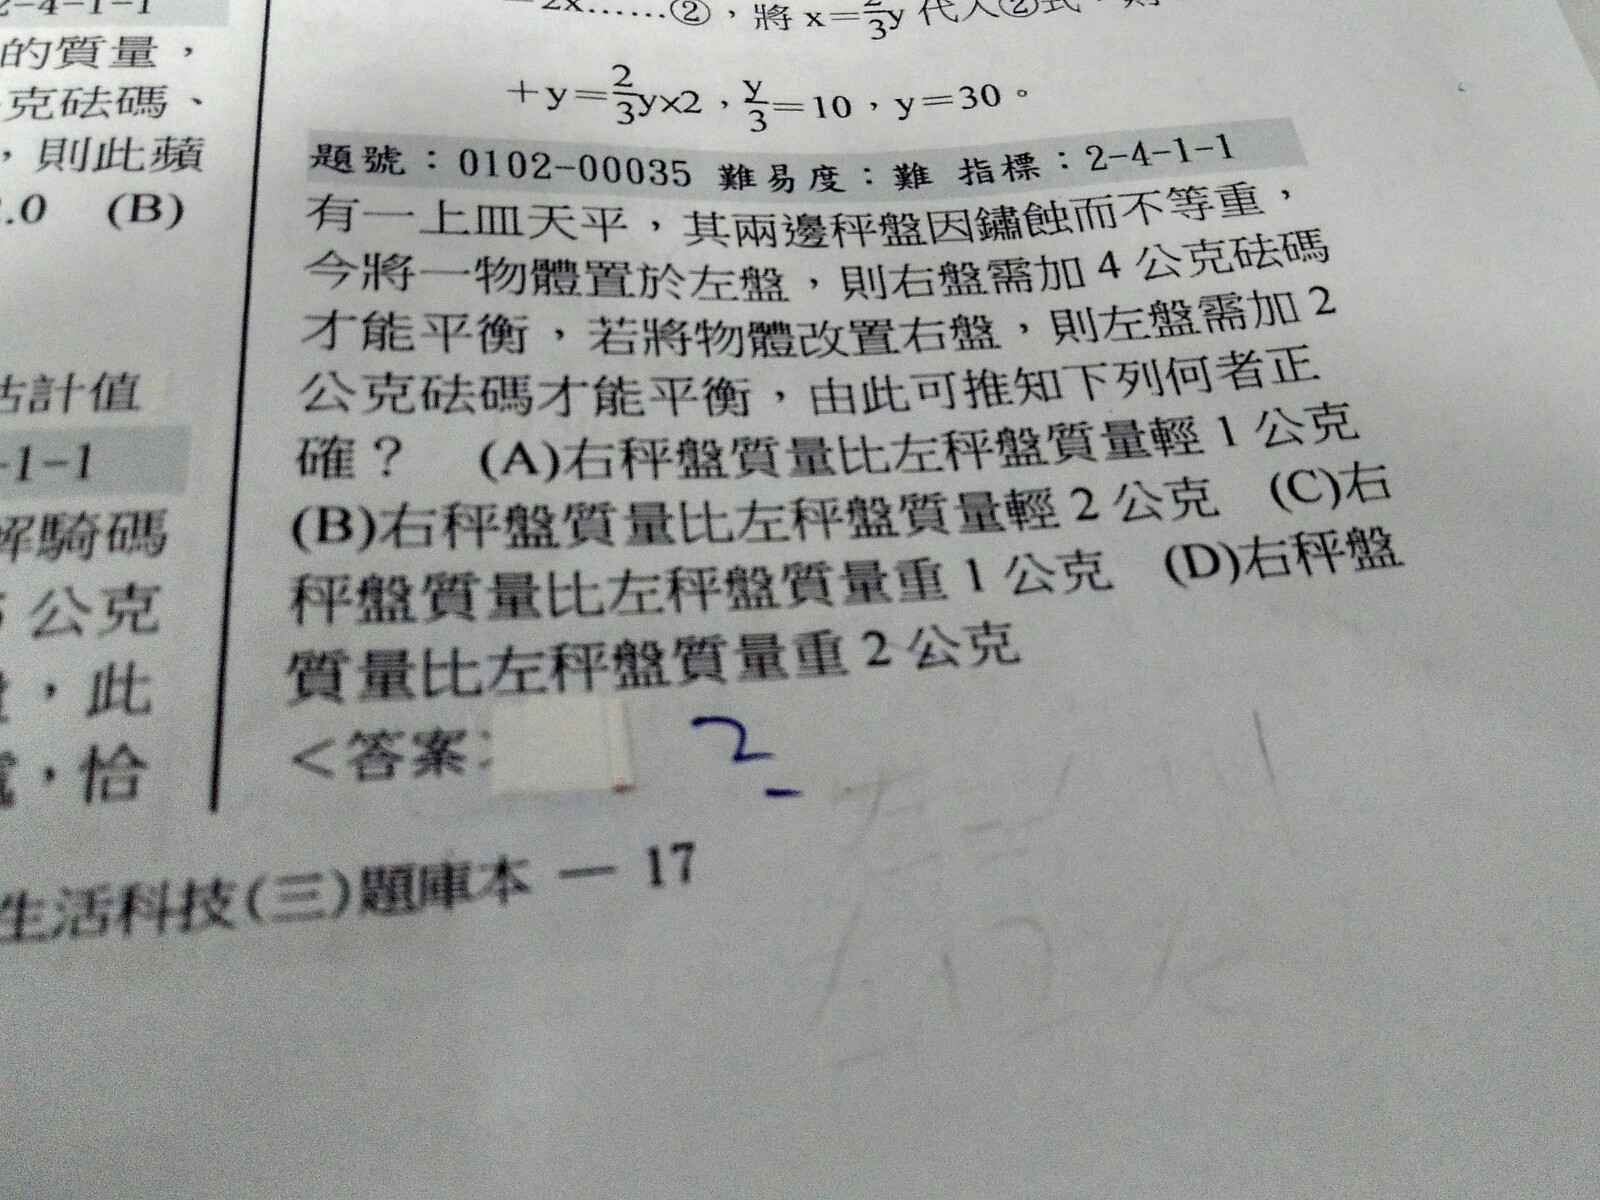 2-4-1-1
的質量，
克砝碼、
，則此蘋
.0 (B)
估計值
-1-1
解騎碼
公克
，此
，恰
−2x……②，將 x=2/3y 代入②式，則
+y=2/3y×2，y/3=10，y=30。
題號：0102-00035 難易度：難 指標：2-4-1-1
有一上皿天平，其兩邊秤盤因鏽蝕而不等重，
今將一物體置於左盤，則右盤需加 4 公克砝碼
才能平衡，若將物體改置右盤，則左盤需加 2
公克砝碼才能平衡，由此可推知下列何者正
確？ (A)右秤盤質量比左秤盤質量輕 1 公克
(B)右秤盤質量比左秤盤質量輕 2 公克 (C)右
秤盤質量比左秤盤質量重 1 公克 (D)右秤盤
質量比左秤盤質量重 2 公克
<答案： 2
生活科技(三)題庫本 — 17